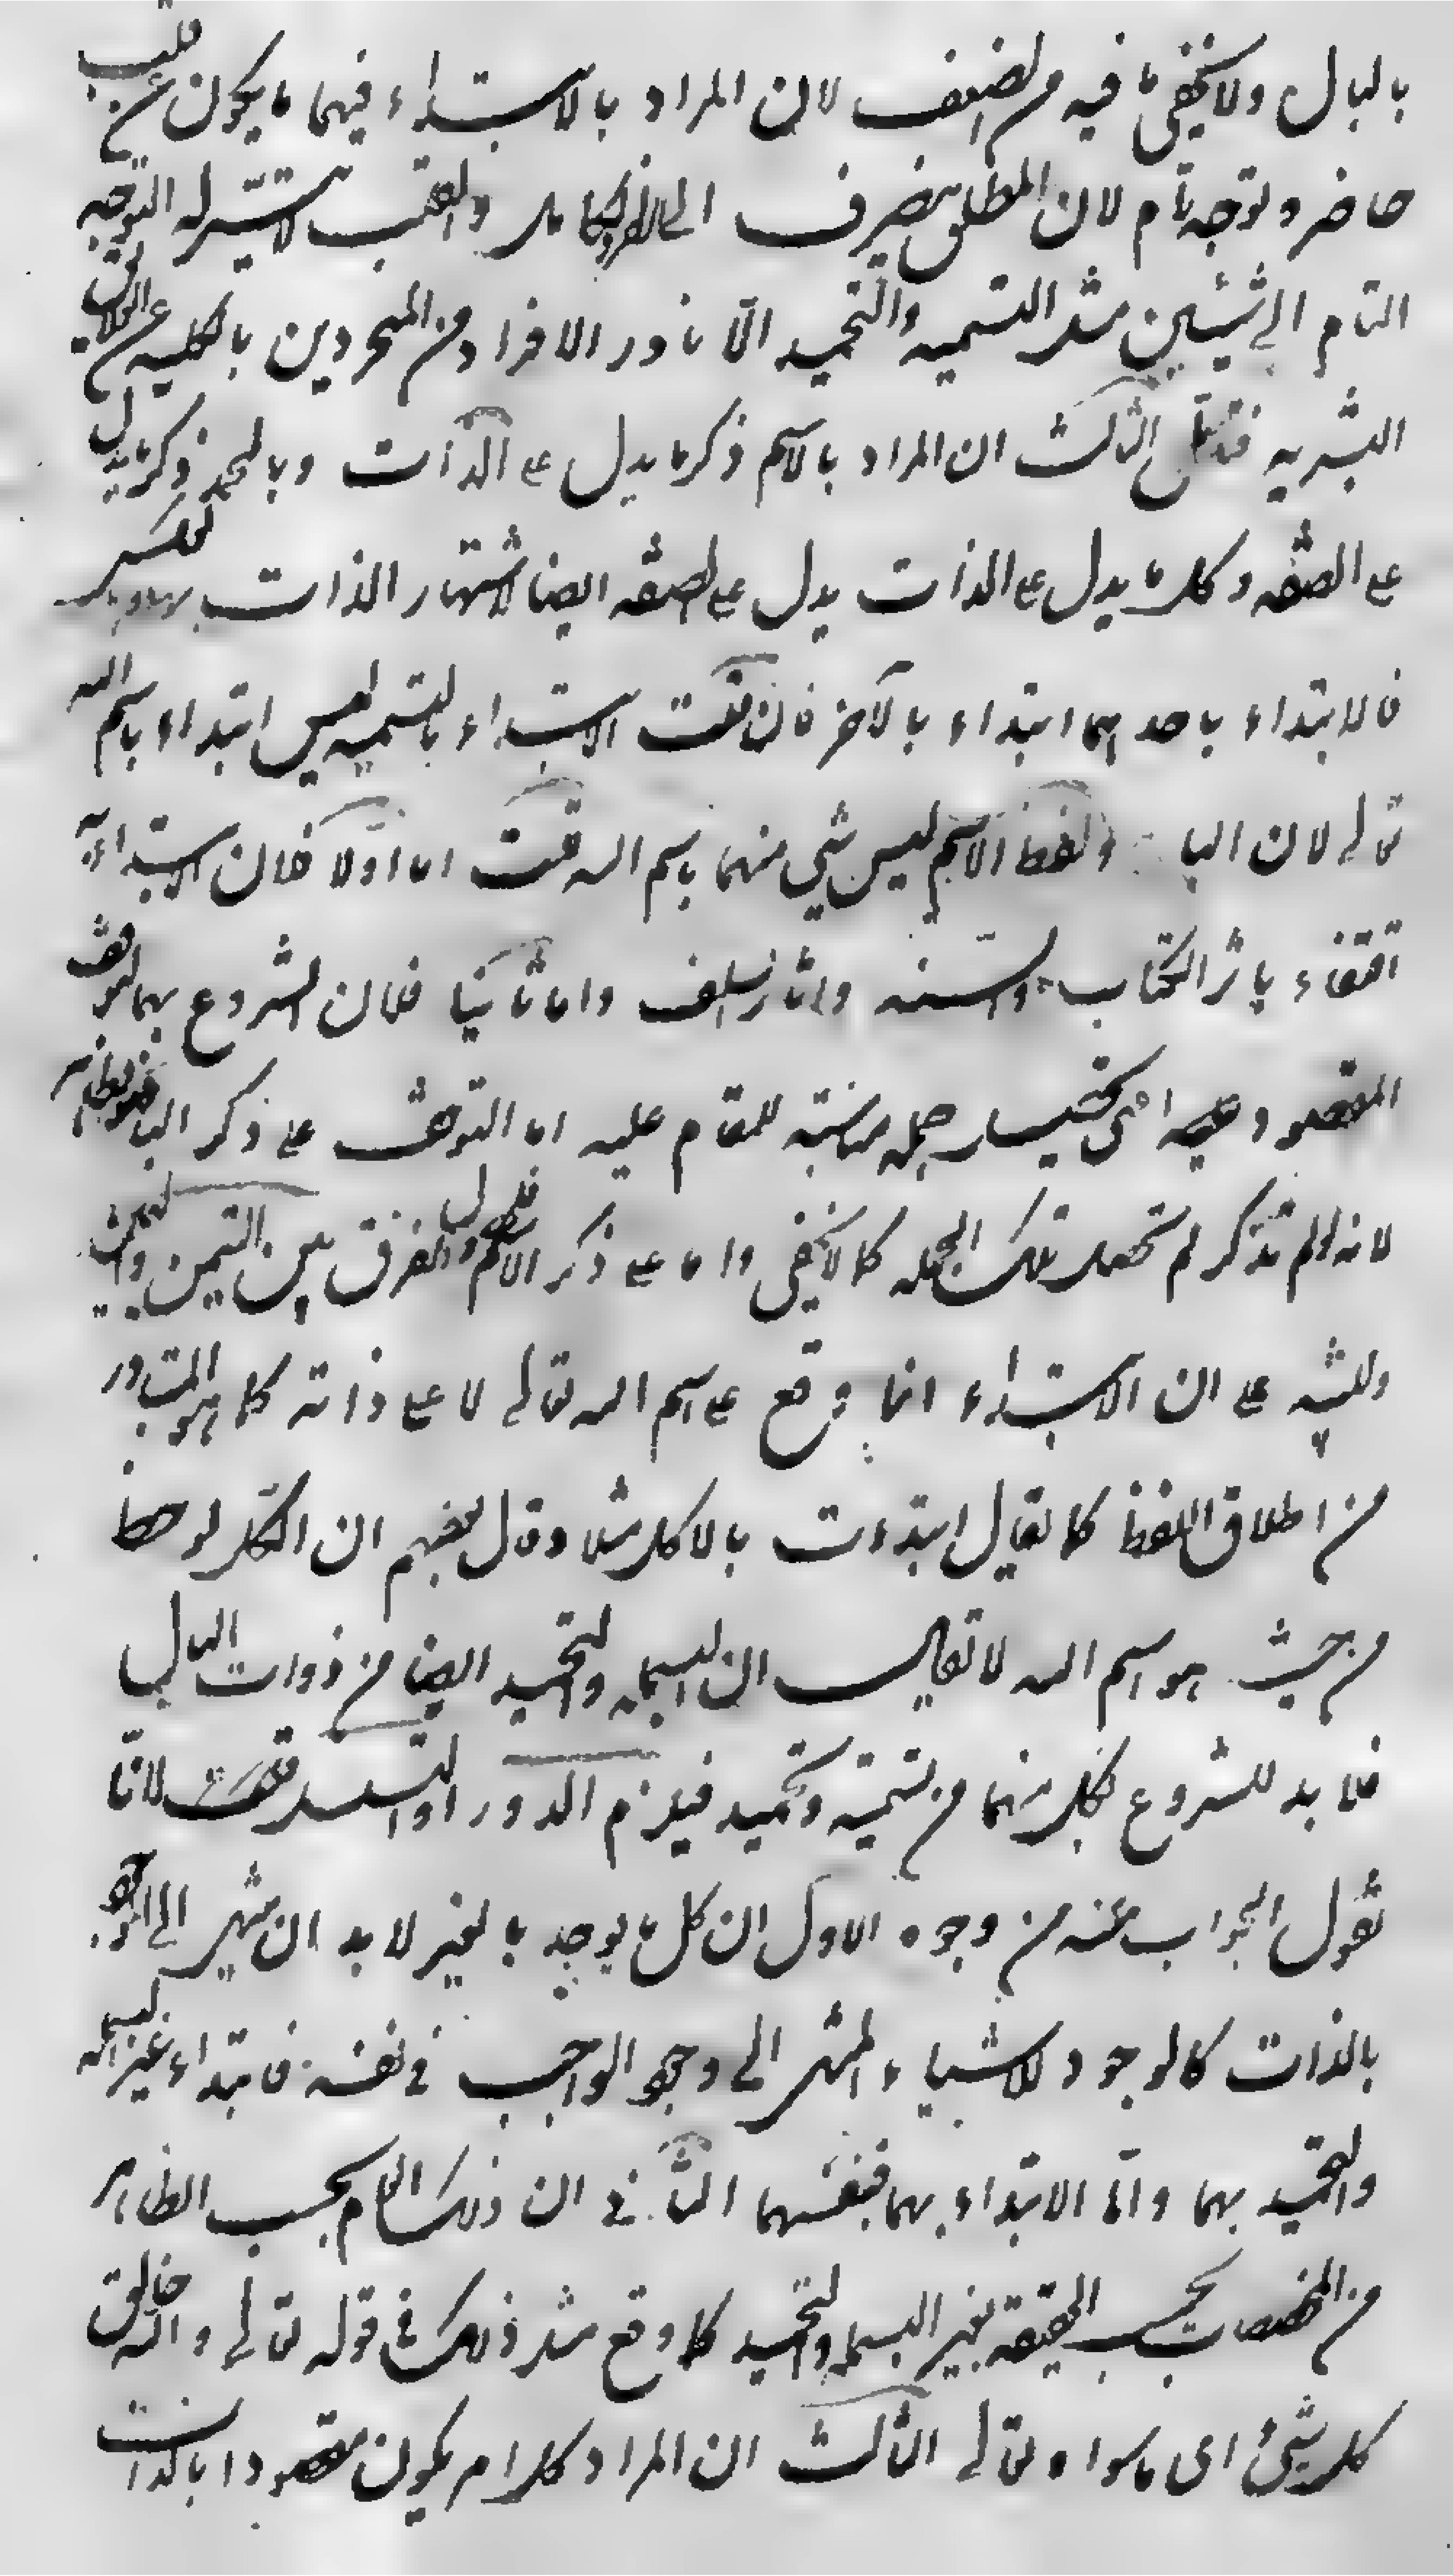 بالبال ولا يخفى ما فيه من الضعف لان المراد بالابتداء فيهما ما يكون عن قلب
حاضر وتوجه تام لان المطلق ينصرف الى الفرد الكامل والقلب لا يتيسر له التوجه
التام الى شيئين مثل التسميه والتحميد الا نادر الافراد من المجردين بالكليه عن العلائق
البشريه فتأمل الثالث ان المراد بالاسم ذكر ما يدل على الذات وبالحمد ذكر ما يدل
على الصفه وكل ما يدل على الذات يدل على الصفه ايضا لاشتهار الذات
فالابتداء باحدهما ابتداء بالآخر فان قلت الابتداء بالتسميه ليس ابتداء باسم الله
تعالى لان الباء ولفظ الاسم ليس شي منهما باسم الله قلت اما اولا فلان الابتداء به
اقتفاء باثر الكتاب والسنه واثار السلف واما ثانيا فلان الشروع بهما لتوقف
المقصود عليه اعنى جمله مناسبة للمقام عليه اما التوقف على ذكر الباء فظاهر
لانه لو لم تذكر لم تحصل تلك الجمله كما لا يخفى واما على ذكر الاسم فللفرق بين اليمين والتيمن
وللتنبيه على ان الابتداء انما وقع على اسم الله تعالى لا على ذاته كما هو المتبادر
من اطلاق اللفظ كما يقال ابتدءت بالاكل مثلا وقال بعضهم ان الكل لوحظ
من حيث هو اسم الله لا يقال ان البسمله والتحميد ايضا من ذوات البال
فلا بد للشروع بكل منهما من تسمية وتحميد فيلزم الدور او التسلسل قلت لانا
نقول الجواب عنه من وجوه الاول ان كل ما يوجد بالغير لا بد ان ينتهى الى الموجود
بالذات كالوجود للاشياء المنتهى الى وجود الواجب فى نفسه فابتداء غير البسمله
والتحميد بهما واما الابتداء بهما فبنفسهما الثانى ان ذلك العام بحسب الظاهر
من المخصصات بحسب الحقيقه بغير البسمله والتحميد كما وقع مثل ذلك فى قوله تعالى والله خالق
كل شئ اى ما سواه تعالى الثالث ان المراد كل امر يكون مقصودا بالذات